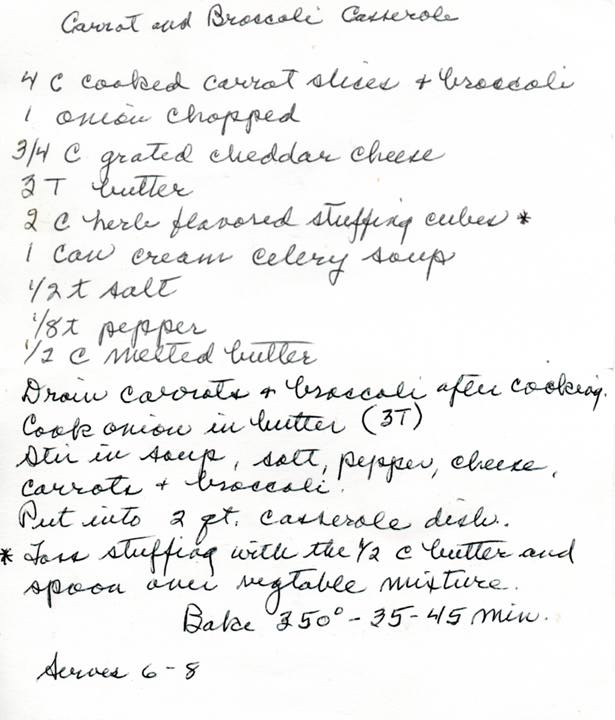 Carrot and Broccoli Casserole
4 C cooked carrot slices + broccoli
1 onion chopped
3/4 C grated cheddar cheese
3 T butter
2 C herb flavored stuffing cubes *
1 can cream celery soup
1/2 t salt
1/8 t pepper
1/2 C melted butter
Drain carrots + broccoli after cooking.
Cook onion in butter (3T)
Stir in soup, salt, pepper, cheese,
carrots + broccoli.
Put into 2 qt. casserole dish.
* Toss stuffing with the 1/2 C butter and
spoon over vegtable mixture.
Bake 350° - 35-45 min.
Serves 6-8